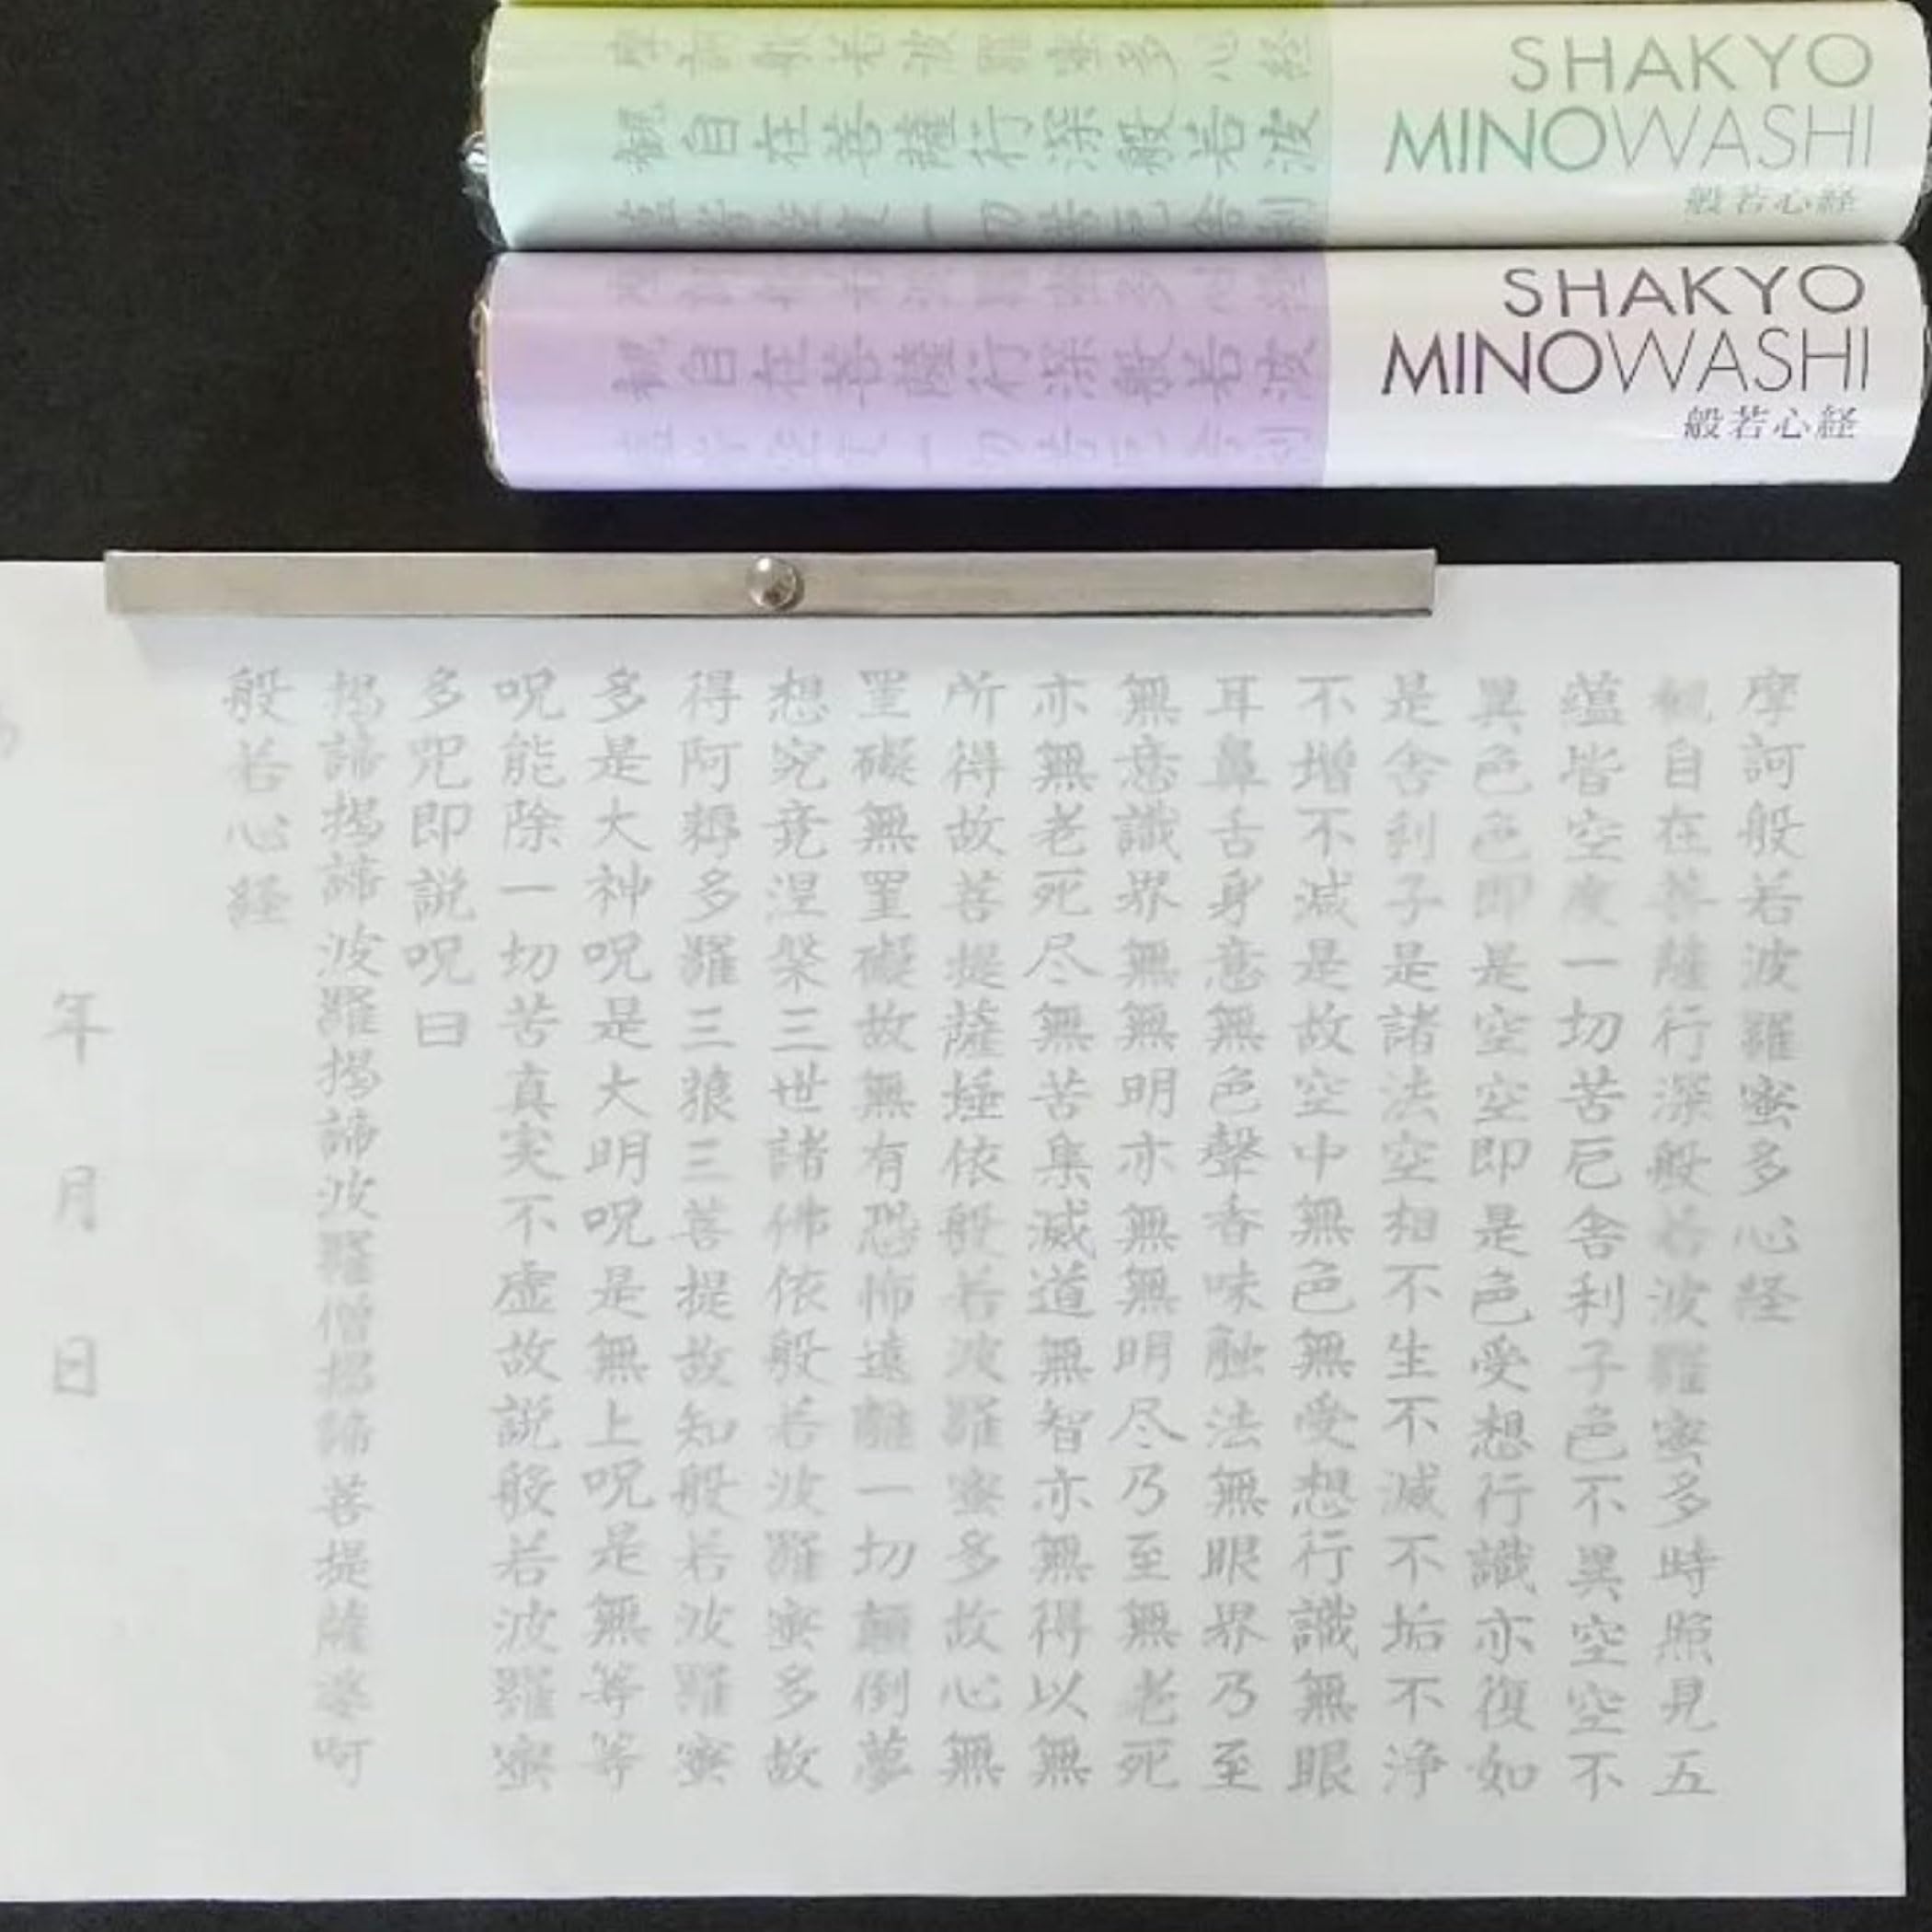 摩訶般若波羅蜜多心経
観自在菩薩行深般若波
SHAKYO
MINOWASHI
般若心経
観自在菩薩行深般若波
SHAKYO
MINOWASHI
般若心経
摩訶般若波羅蜜多心経
観自在菩薩行深般若波羅蜜多時照見五
蘊皆空度一切苦厄舎利子色不異空空不
異色色即是空空即是色受想行識亦復如
是舎利子是諸法空相不生不滅不垢不浄
不増不減是故空中無色無受想行識無眼
耳鼻舌身意無色聲香味触法無眼界乃至
無意識界無無明亦無無明尽乃至無老死
亦無老死尽無苦集滅道無智亦無得以無
所得故菩提薩埵依般若波羅蜜多故心無
罣礙無罣礙故無有恐怖遠離一切顛倒夢
想究竟涅槃三世諸佛依般若波羅蜜多故
得阿耨多羅三藐三菩提故知般若波羅蜜
多是大神呪是大明呪是無上呪是無等等
呪能除一切苦真実不虚故説般若波羅蜜
多咒即説呪曰
揭諦揭諦 波羅揭諦波羅僧揭諦菩提薩婆呵
般若心経
年 月 日